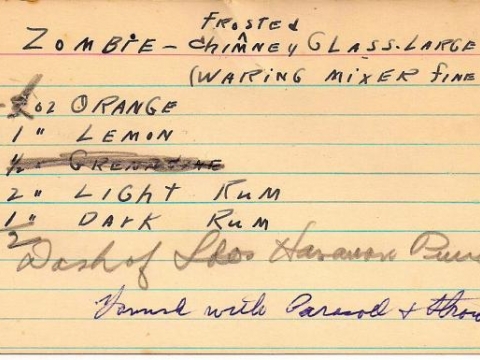 FROSTED
ZOMBIE - CHIMNEY GLASS. LARGE
(WARING MIXER FINE
oz ORANGE
1 " LEMON
1/2 " GRENADINE
2 " LIGHT RUM
1 " DARK RUM
1/2
Dash of Hawaiian
with Parasol &